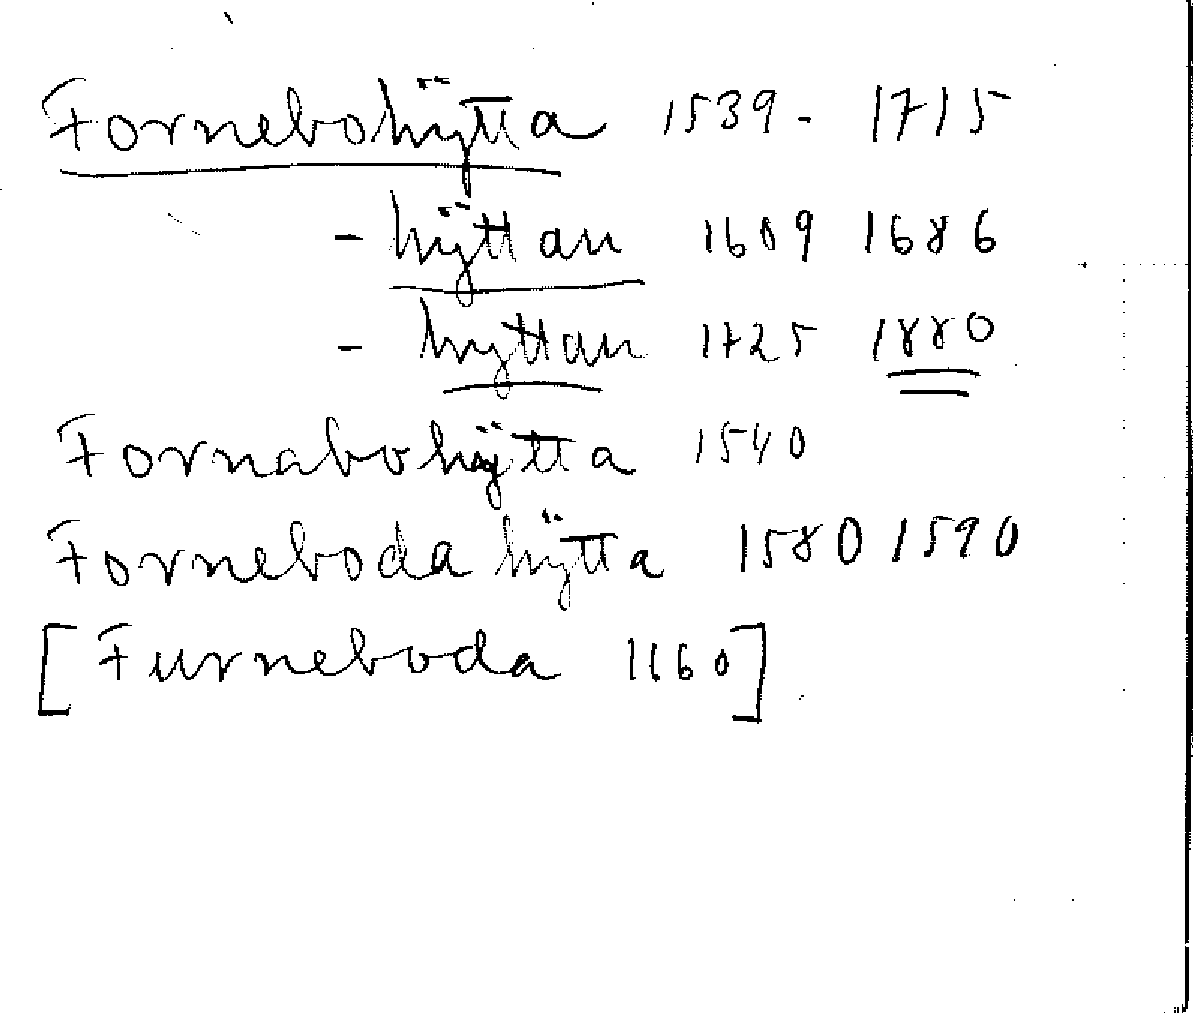 Fornebohÿtta 1539 - 1715
- hÿttan 1609 1686
- hyttan 1725 1880
Fornabohÿtta 1540
Forneboda hÿtta 1580 1590
[Furneboda 1160]